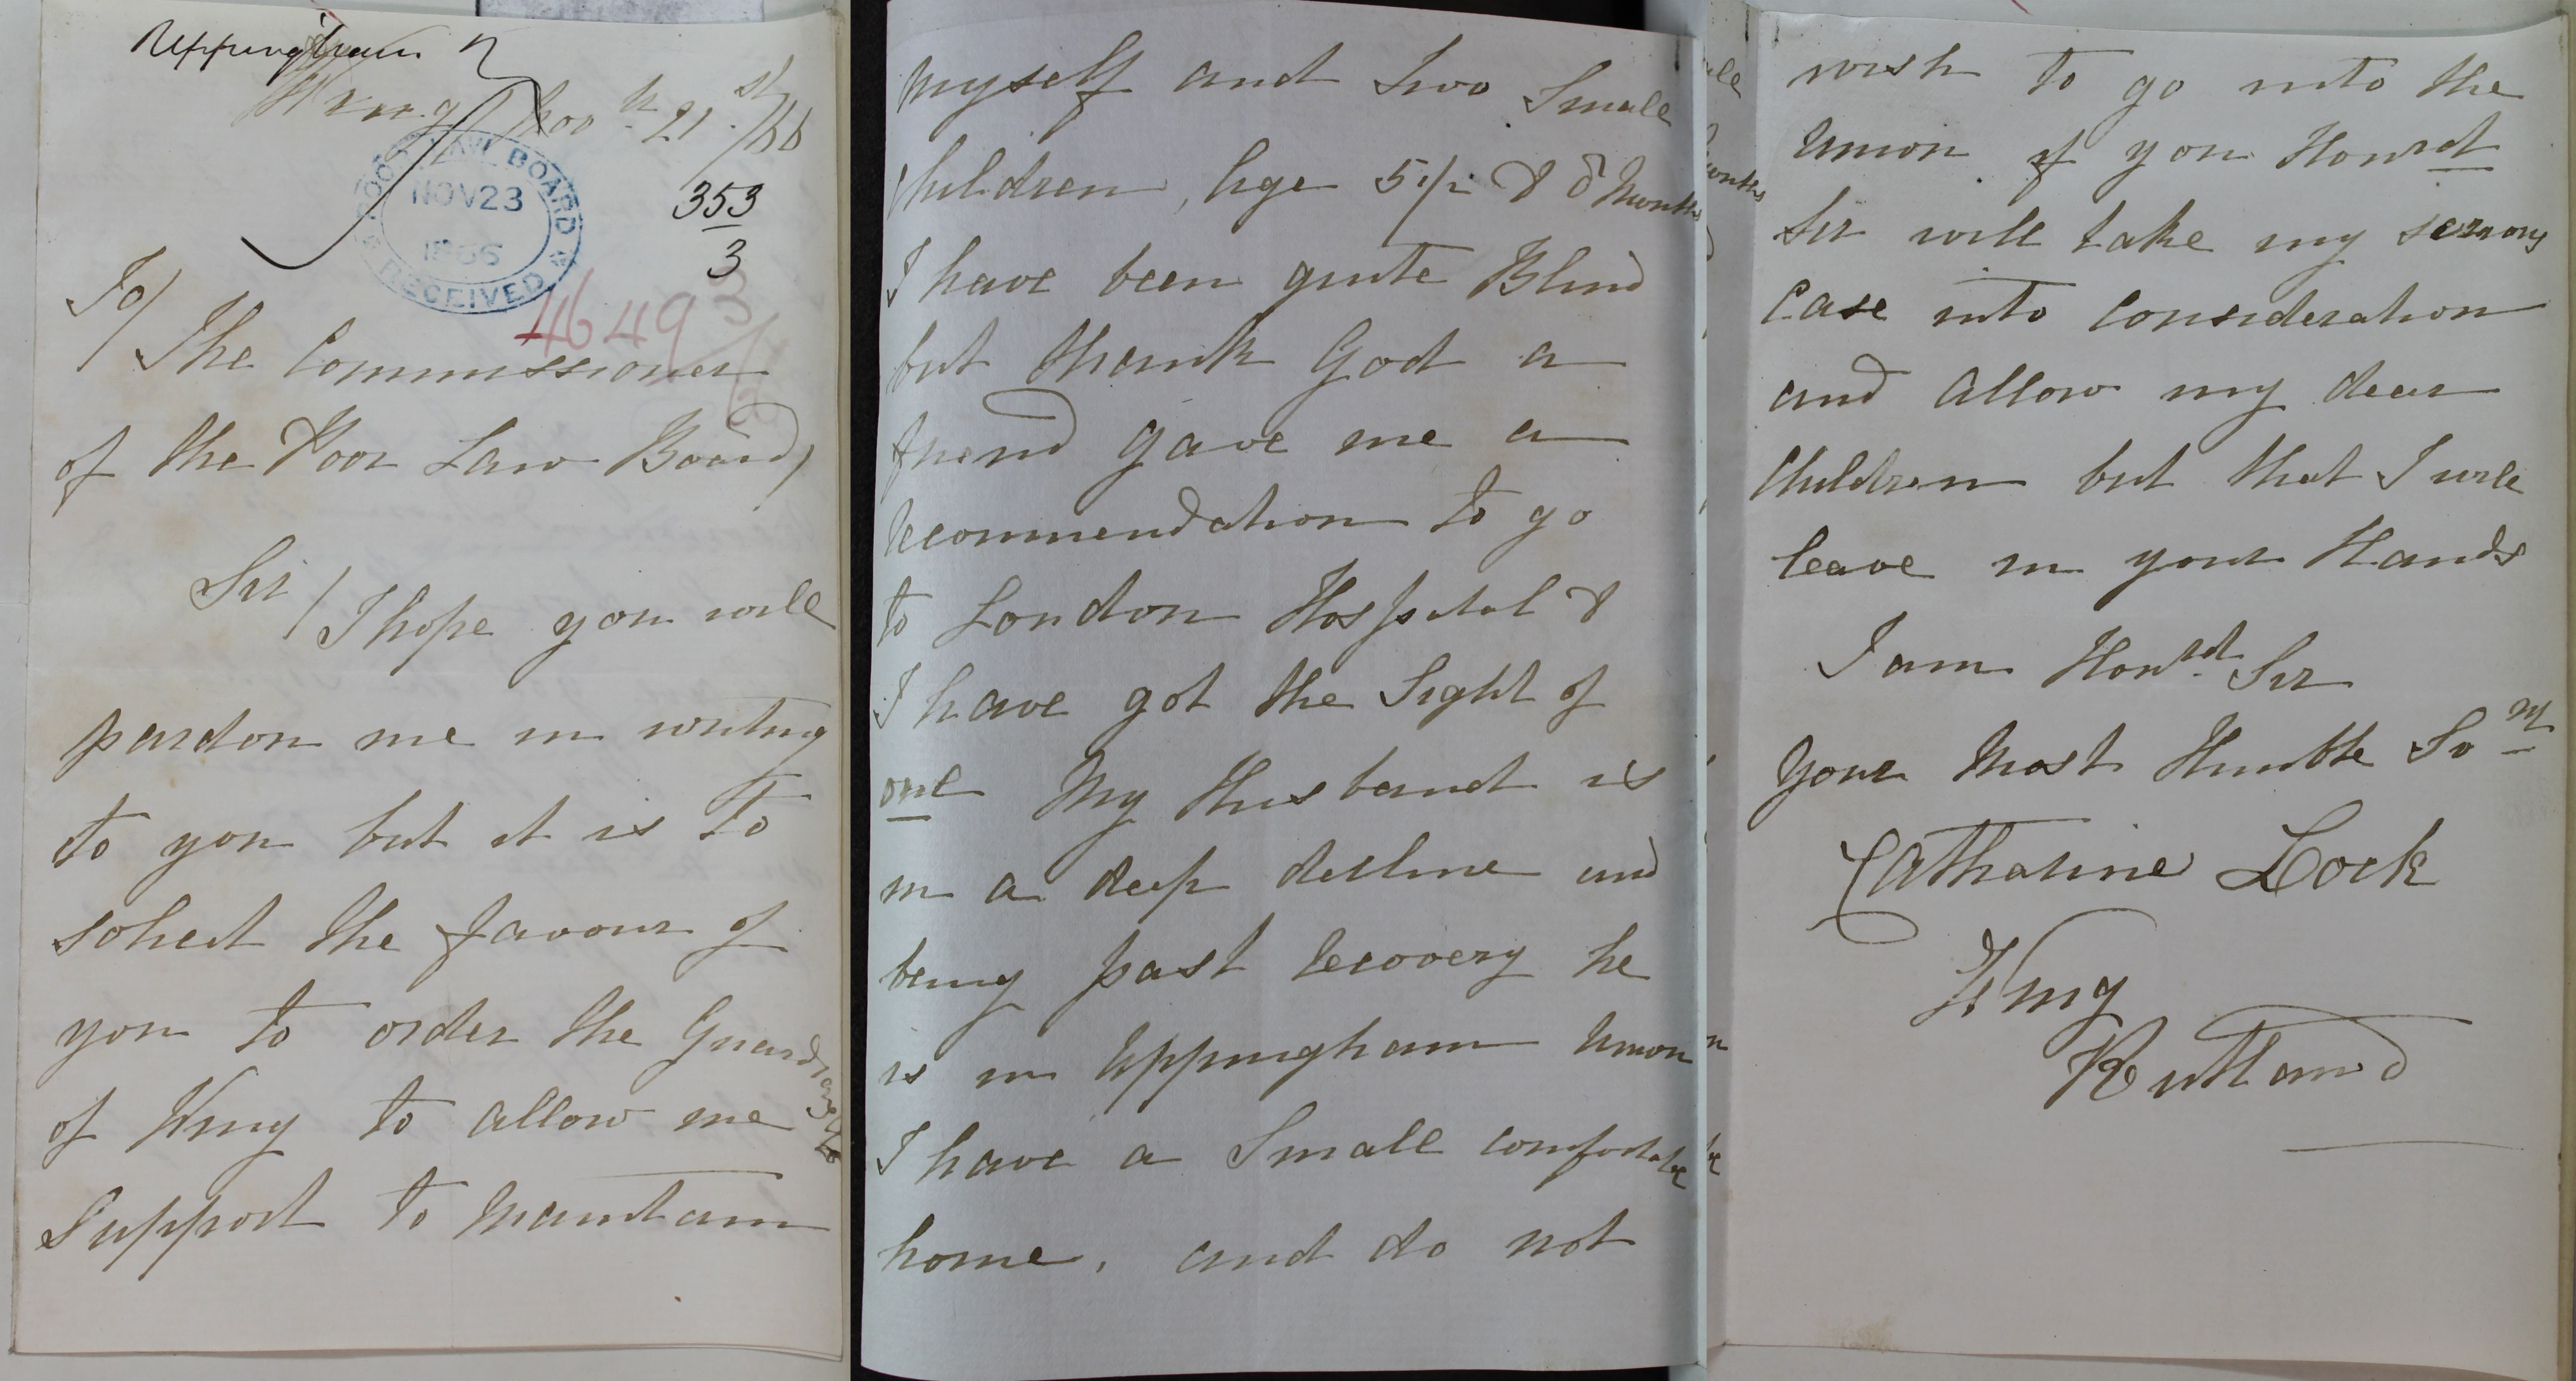 Uppingham
Wing Nov 21st /66
POOR LAW BOARD
NOV 23
1866
RECEIVED
353
3
46493
/66
To/
The Commissioner
of the Poor Law Board,
Sir / I hope you will
pardon me in writing
to you but it is to
solicit the favour of
you to order the Guardians
of Wing to allow me
Support to maintain
myself and Two Small
Children, Age 5 1/2 & 8 Months
I have been quite Blind
but thank God a
friend gave me a
recommendation to go
to London Hospital &
I have got the Sight of
one My Husband is
in a deep decline and
being past recovery he
is in Uppingham Union
I have a Small comfortable
home, and do not
wish to go into the
Union if you Honrd
Sir will take my serious
Case into Consideration
and Allow my dear
Children but that I will
leave in your Hands
I am Honrd Sir
Your Most Humble Svt
Catharine Lock
Wing
Rutland